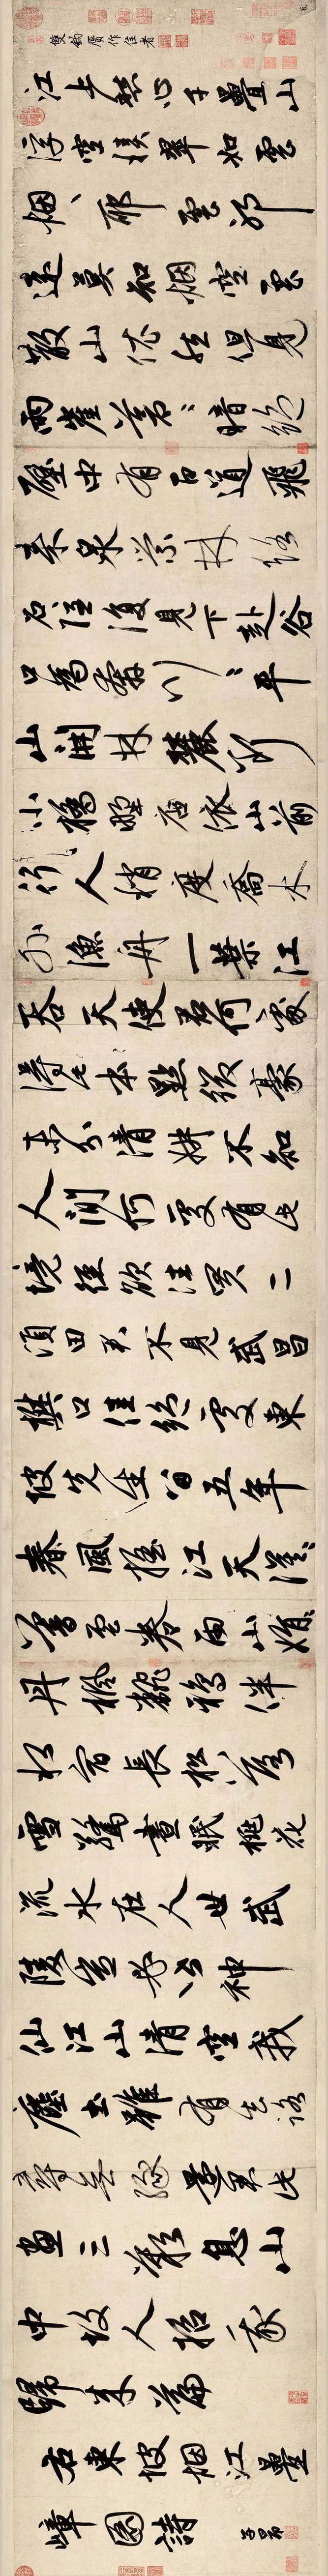 雙鉤贗作佳者
江上愁心千疊山
浮空積翠如雲
烟山耶雲耶
遠莫知烟空雲
散山依然但見
兩崖蒼〻暗絕
中有百道飛
來泉縈林絡
石隱復見下赴谷
口為奔川〻平
山開林麓斷
小橋野店依山前
行人稍度喬木
外漁舟一葉江
吞天使君何處
得此本點綴豪
末分清妍不知
人間何處有此
境徑欲往買二
頃田君不見武昌
樊口佳絕處東
坡先生留五年
春風搖江天漠〻
暮雲卷雨山娟〻
丹楓翻鴉伴
水宿長松落
雪驚晝眠桃花
流水在人世武
陵豈必皆神
仙江山清空我
塵土雖有去路
尋無緣還君此
畫三歎息山
中故人招我
歸來篇
右東坡烟江疊
嶂圖詩 子昂